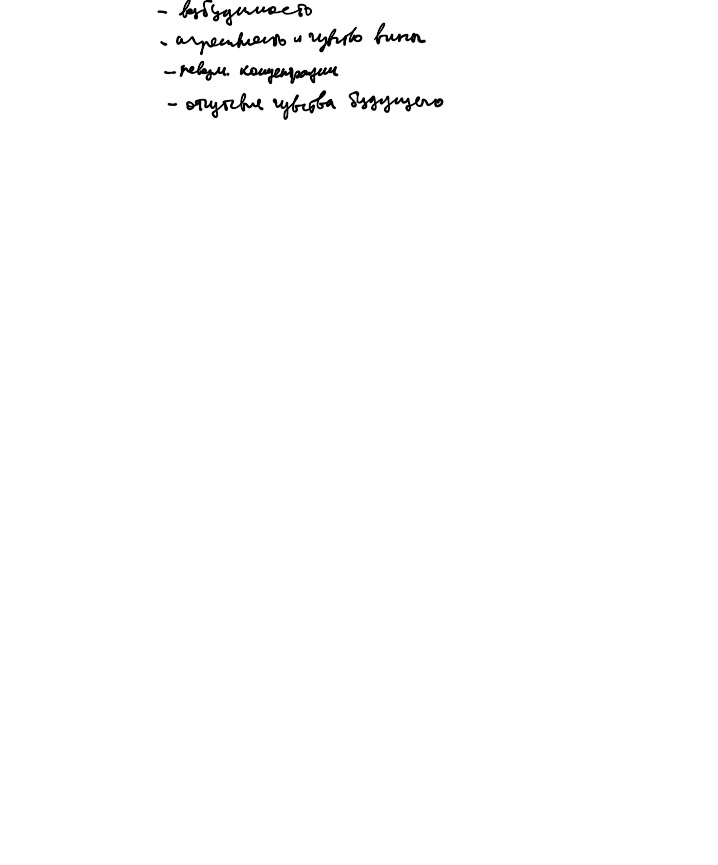 - возбудимость
- агрессивность и чувство вины
- невозм. концентрации
- отсутствие чувства будущего